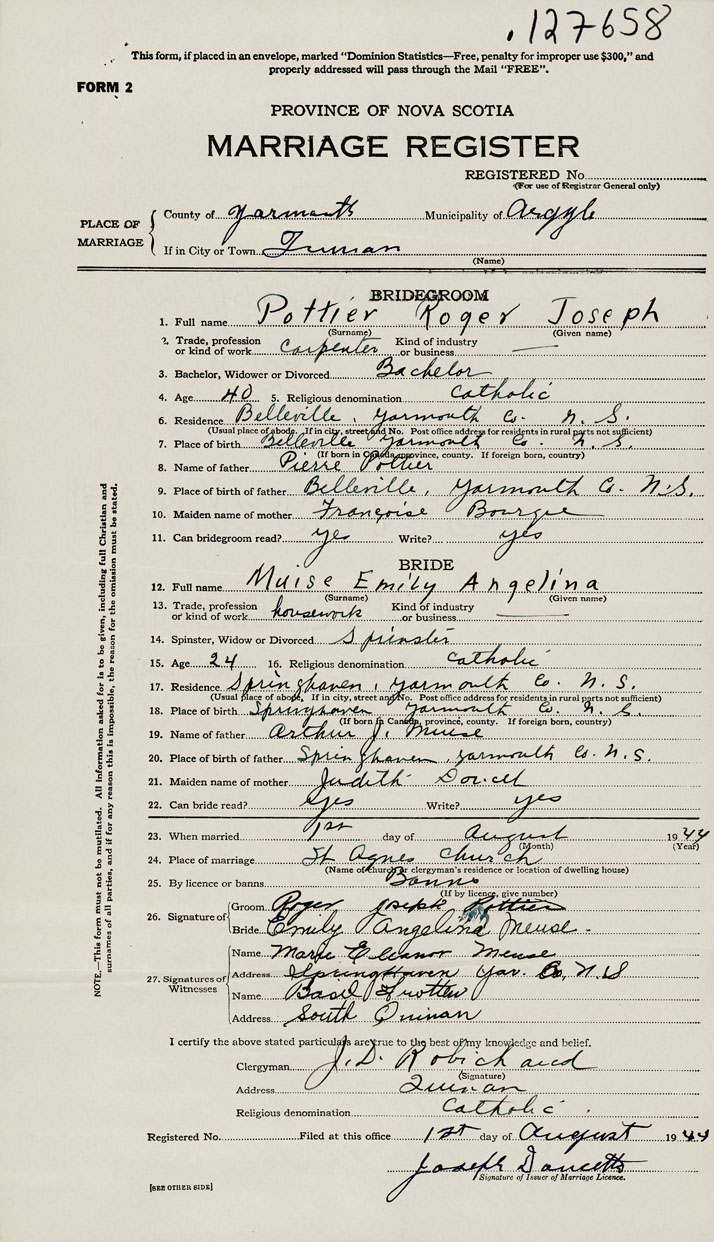 .127658
This form, if placed in an envelope, marked "Dominion Statistics—Free, penalty for improper use $300," and
properly addressed will pass through the Mail "FREE".
FORM 2
PROVINCE OF NOVA SCOTIA
MARRIAGE REGISTER
REGISTERED No.
(For use of Registrar General only)
PLACE OF MARRIAGE
County of Yarmouth Municipality of Argyle
If in City or Town Quinan
(Name)
BRIDEGROOM
1. Full name Pottier Roger Joseph
(Surname) (Given name)
2. Trade, profession or kind of work carpenter Kind of industry or business —
3. Bachelor, Widower or Divorced Bachelor
4. Age 40 5. Religious denomination Catholic
6. Residence Belleville, Yarmouth Co. N.S.
(Usual place of abode. If in city, street and No. Post office address for residents in rural parts not sufficient)
7. Place of birth Belleville Yarmouth Co. N.S.
(If born in Canada, province, county. If foreign born, country)
8. Name of father Pierre Pottier
9. Place of birth of father Belleville, Yarmouth Co. N.S.
10. Maiden name of mother Françoise Bourque
11. Can bridegroom read? yes Write? yes
BRIDE
12. Full name Muise Emily Angelina
(Surname) (Given name)
13. Trade, profession or kind of work housework Kind of industry or business —
14. Spinster, Widow or Divorced Spinster
15. Age 24 16. Religious denomination Catholic
17. Residence Springhaven, Yarmouth Co. N.S.
(Usual place of abode, If in city, street and No. Post office address for residents in rural parts not sufficient)
18. Place of birth Springhaven Yarmouth Co. N.S.
(If born in Canada, province, county. If foreign born, country)
19. Name of father Arthur J. Muise
20. Place of birth of father Springhaven, Yarmouth Co. N.S.
21. Maiden name of mother Judith Doucet
22. Can bride read? yes Write? yes
23. When married 1st day of August 1944
(Month) (Year)
24. Place of marriage St Agnes church
(Name of church or clergyman's residence or location of dwelling house)
25. By licence or banns Banns
(If by licence, give number)
26. Signature of
Groom Roger Joseph Pottier
Bride Emily Angelina Meuse.
27. Signatures of Witnesses
Name Marie Eleanor Meuse
Address Springhaven Yar. Co. N.S
Name Basil
Address South Quinan
I certify the above stated particulars are true to the best of my knowledge and belief.
Clergyman J.D. Robichaud
(Signature)
Address Quinan
Religious denomination Catholic.
Registered No. Filed at this office 1st day of August 1944
Joseph Doucette
Signature of Issuer of Marriage Licence.
[SEE OTHER SIDE]
NOTE.—This form must not be mutilated. All information asked for is to be given, including full Christian and
surnames of all parties, and if for any reason this is impossible, the reason for the omission must be stated.